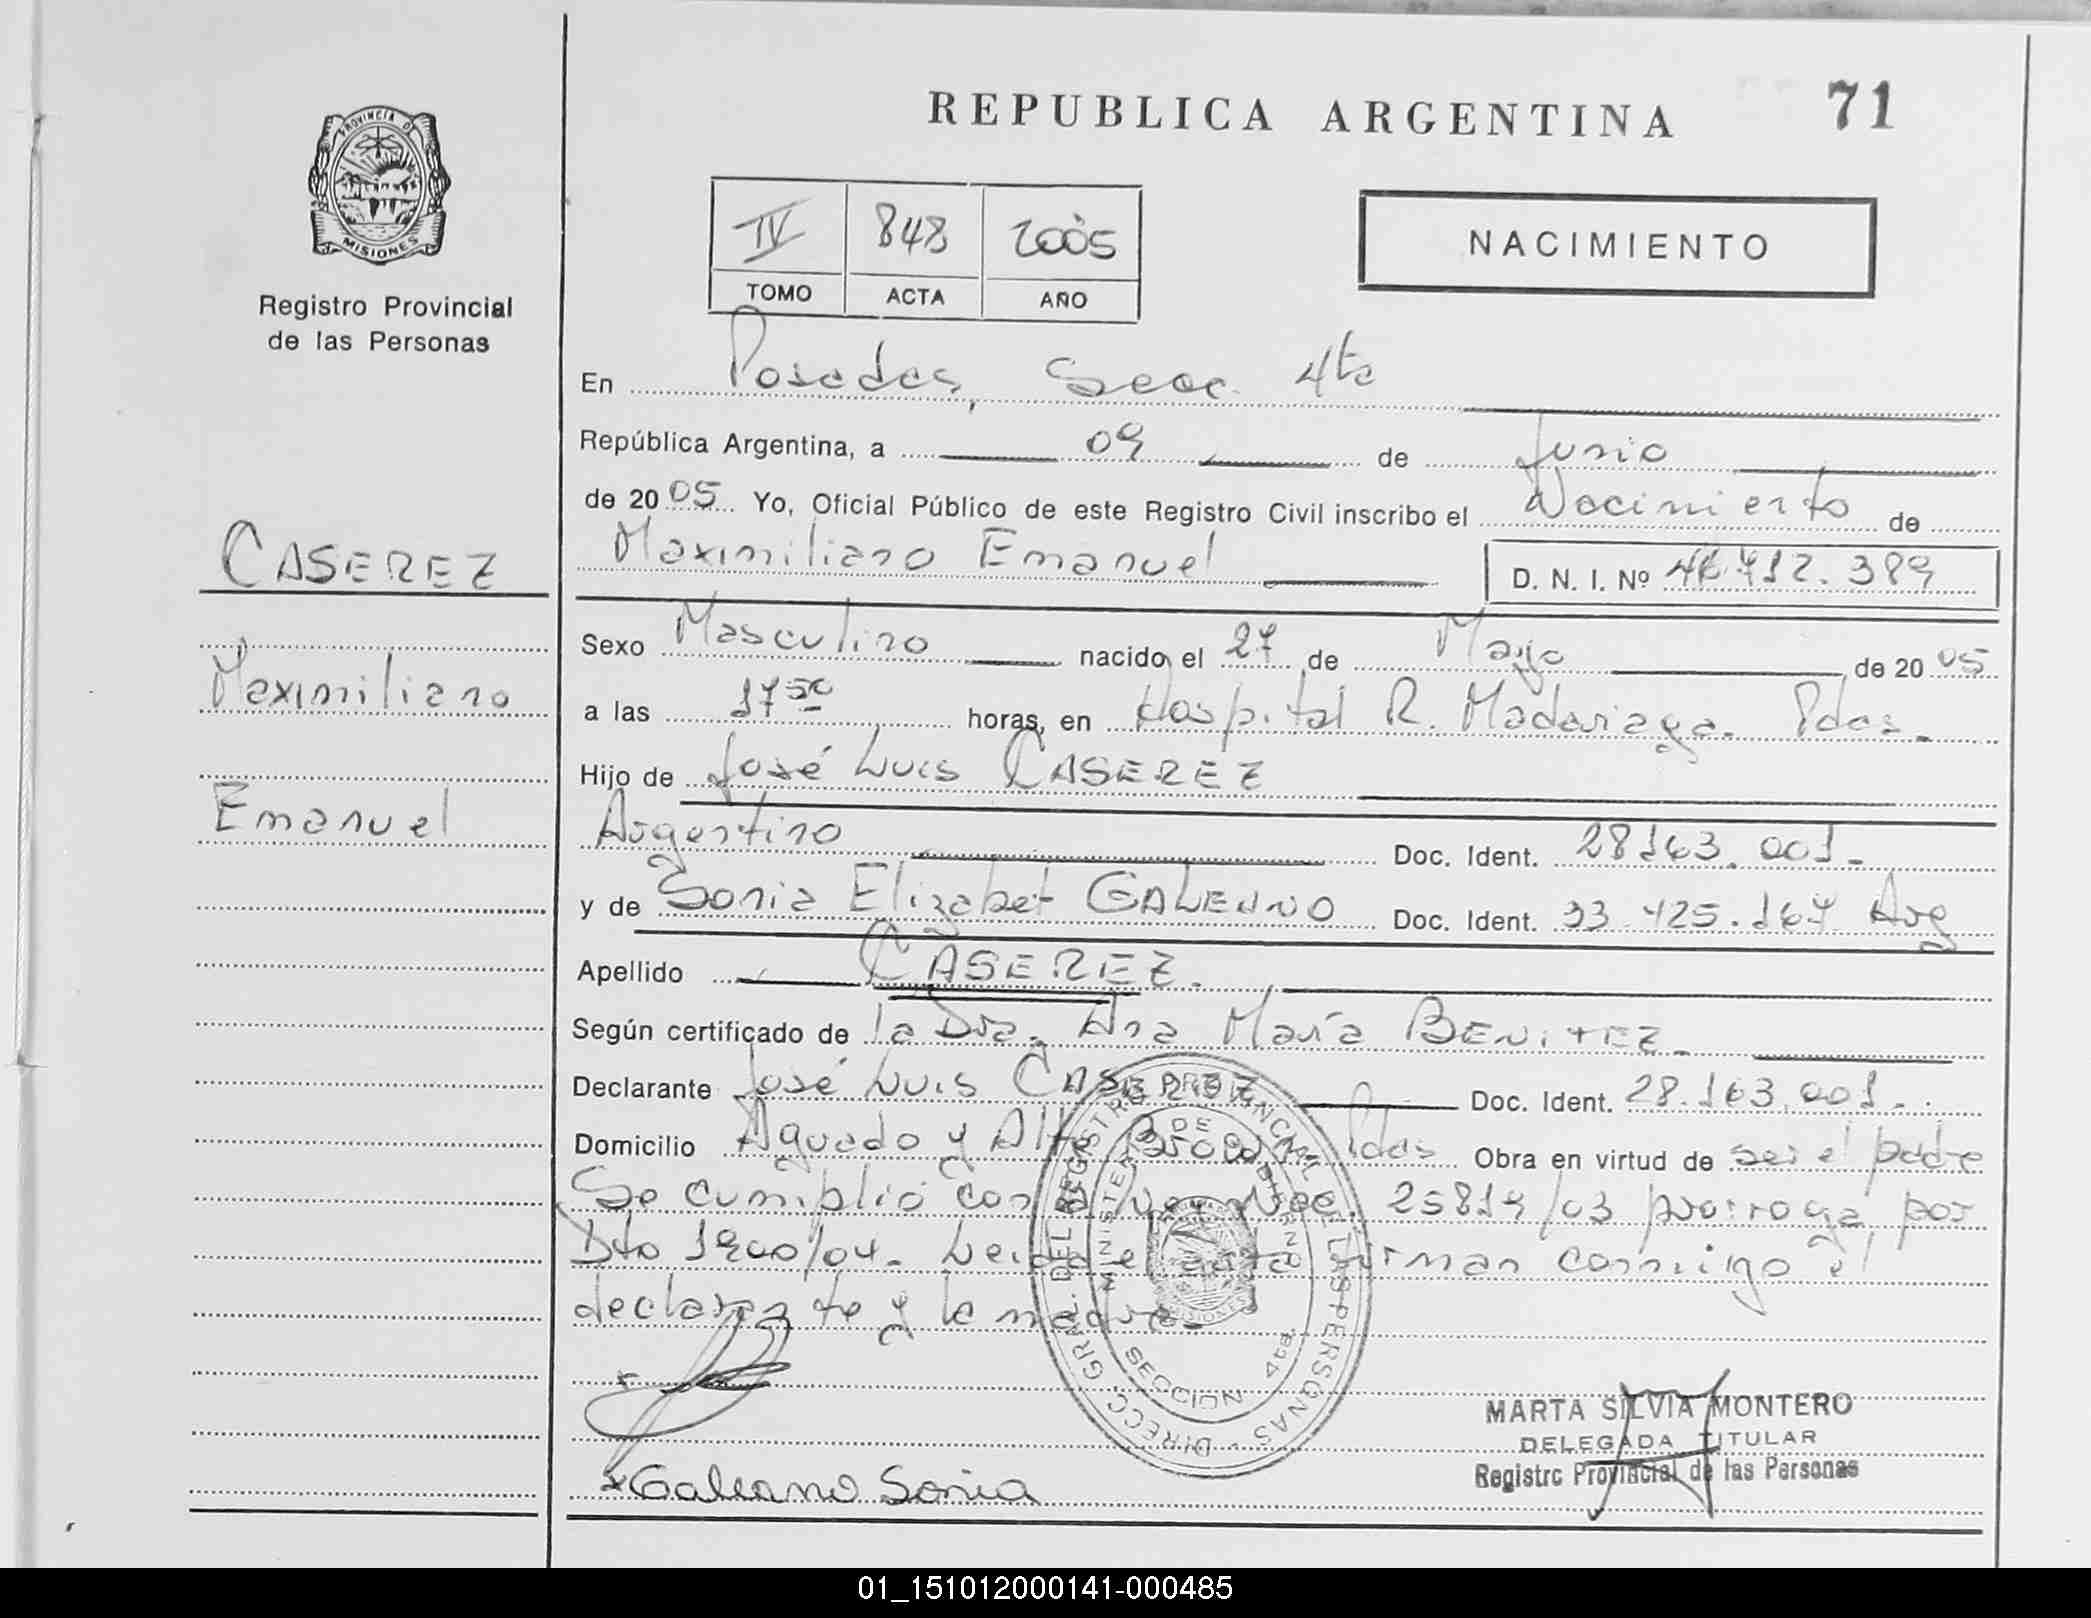 REPUBLICA ARGENTINA 71
PROVINCIA DE
MISIONES
Registro Provincial
de las Personas
IV 848 2005
TOMO ACTA AÑO
NACIMIENTO
En Posadas, Secc. 4ta
República Argentina, a 09 de Junio
de 2005 Yo, Oficial Público de este Registro Civil inscribo el Nacimiento de
CASEREZ
Maximiliano Emanuel D. N. I. Nº 712.389
Sexo Masculino nacido el 27 de Mayo de 2005
Maximiliano
a las 17 50 horas, en Hospital R. Madariaga. Pdas.
Hijo de José Luis CASEREZ
Emanuel
Argentino Doc. Ident. 28163.001.
y de Sonia Elizabet GALEANO Doc. Ident. 33.425.167 Arg
Apellido CASEREZ.
Según certificado de la Dra. Ana María BENITEZ.
Declarante José Luis CASEREZ Doc. Ident. 28.163.001.
Domicilio Aguado y Alte Brown Pdas Obra en virtud de ser el padre
Se cumplió con la Ley Nac. 25819/03 prorroga por
Dto 1900/04. Leida el acta firman conmigo el
declarante y la madre.
DIRECC. GRAL. DEL REGISTRO PROVINCIAL DE LAS PERSONAS
MINISTERIO DE GOBIERNO
SECCION 4ta.
MARTA SILVIA MONTERO
DELEGADA TITULAR
Registro Provincial de las Personas
Galeano Sonia
01_151012000141-000485